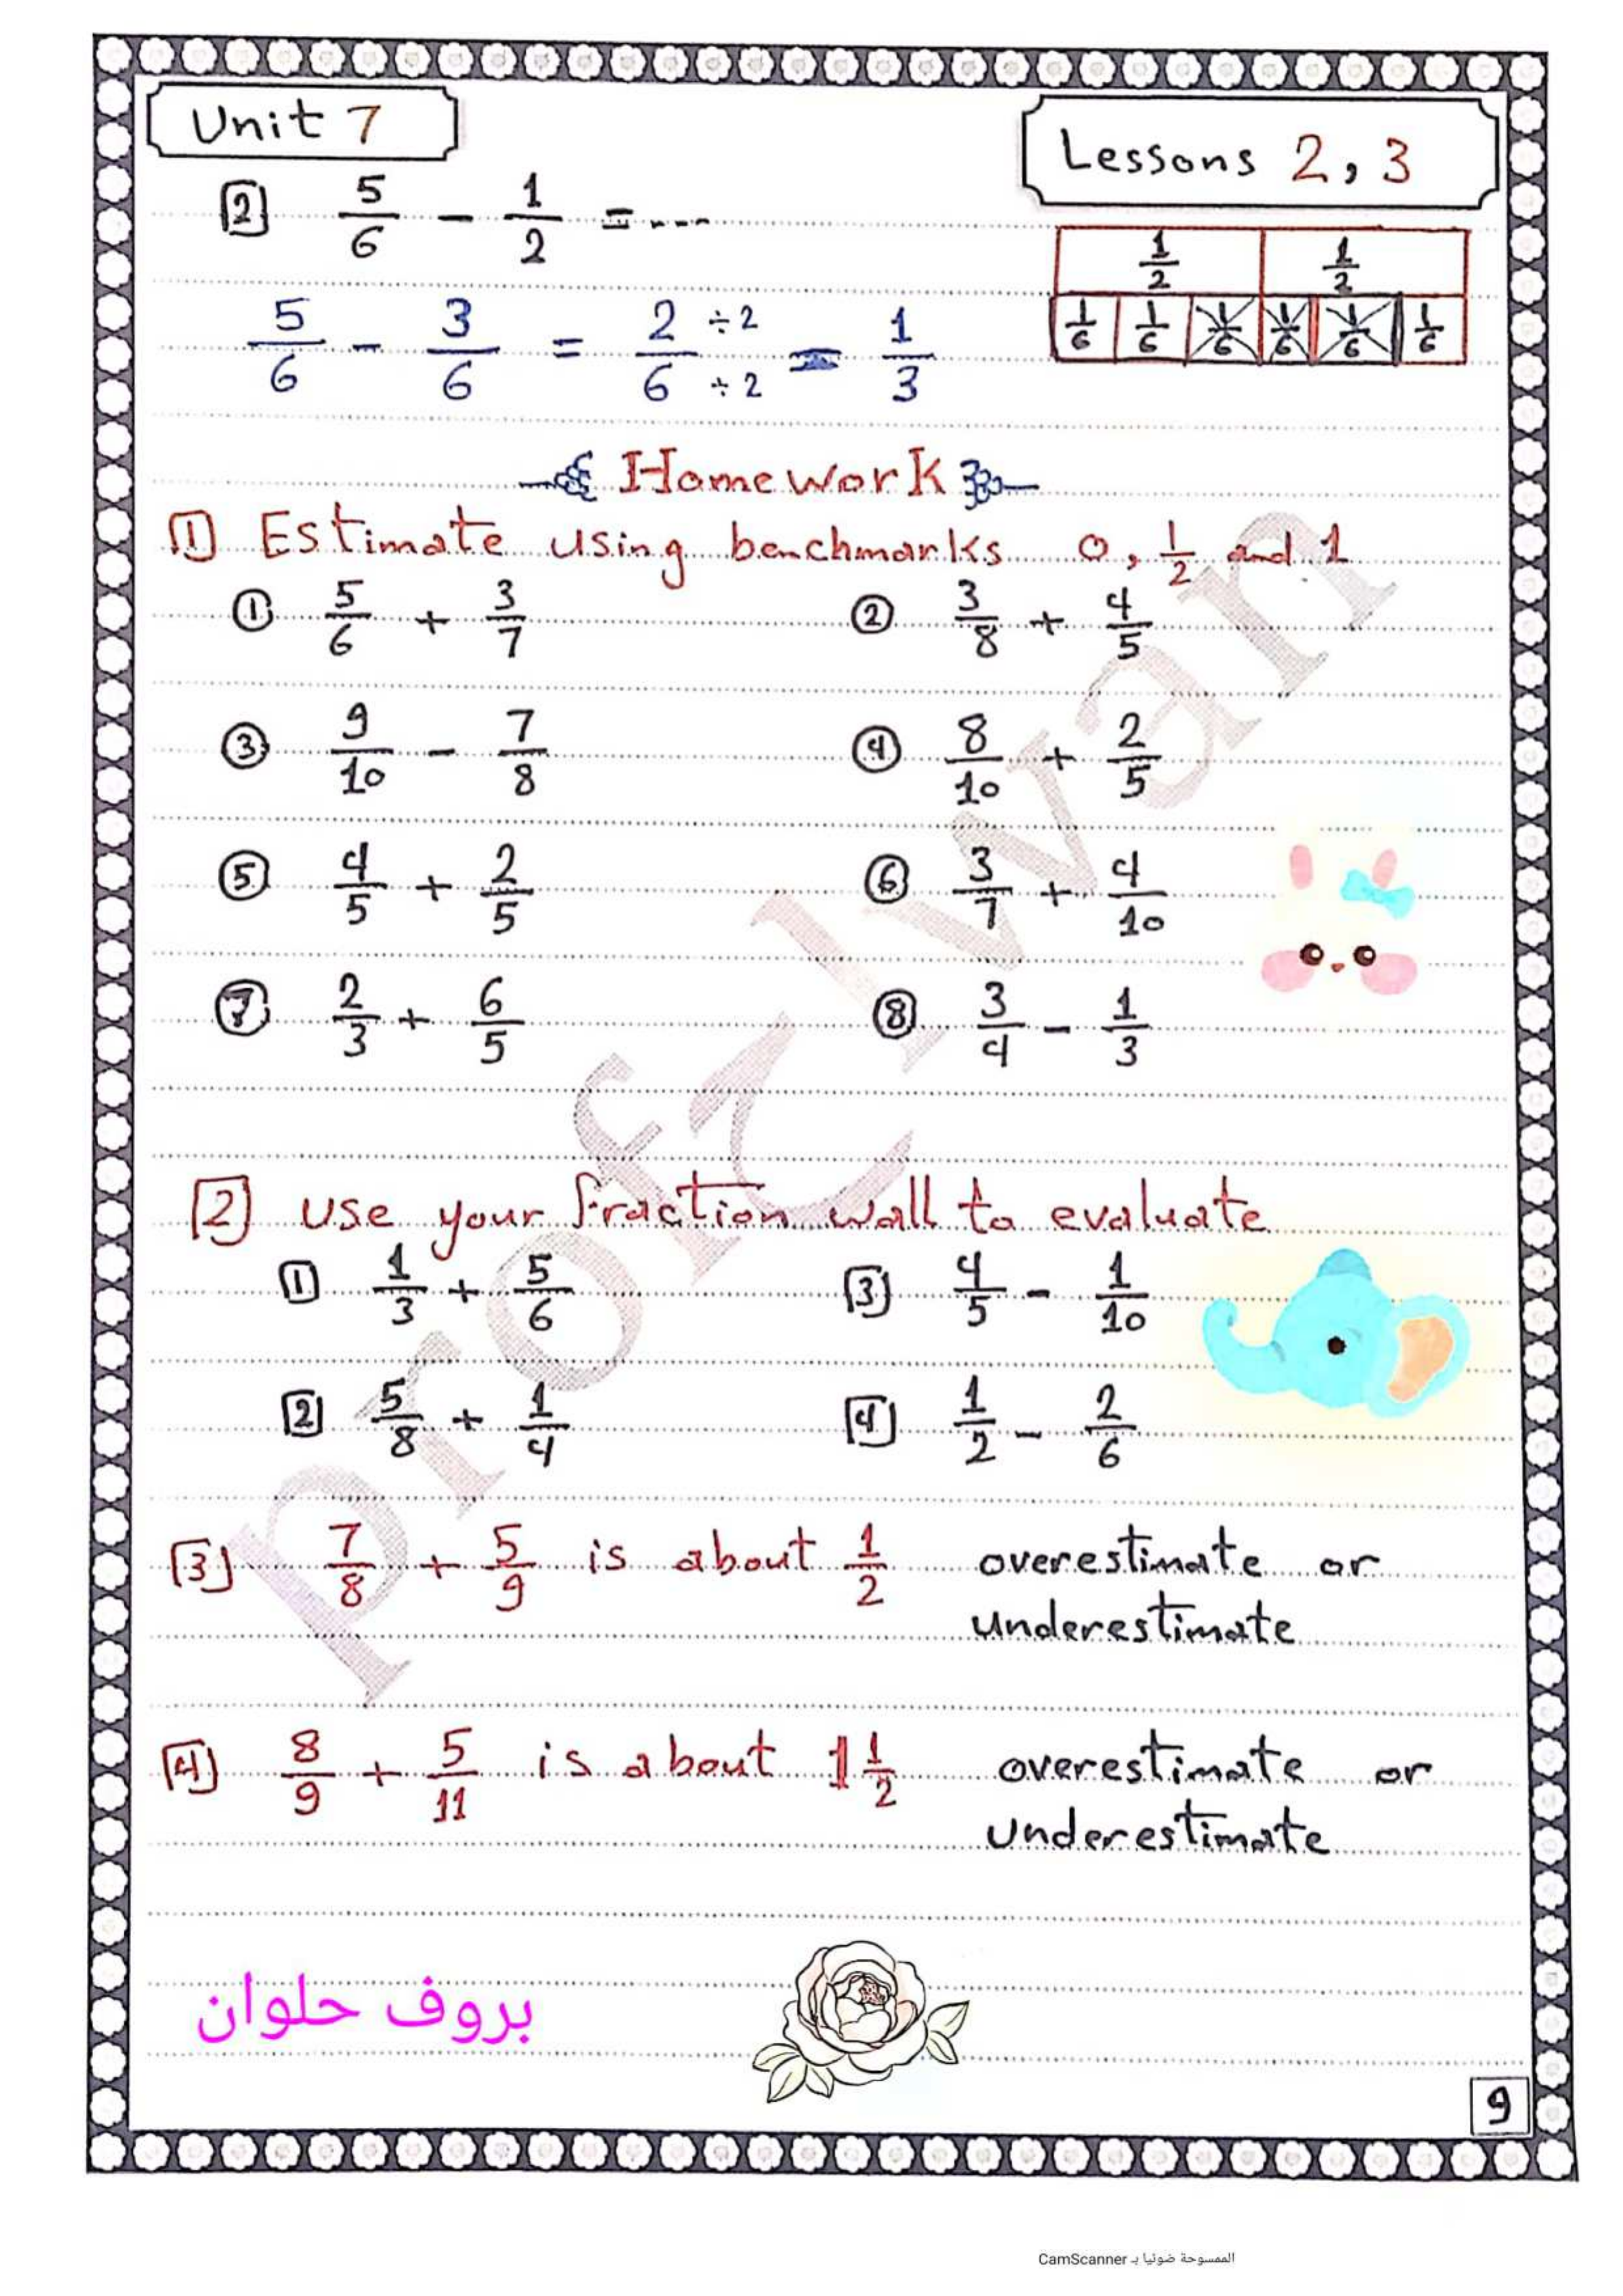 Unit 7
Lessons 2, 3
[2] 5/6 - 1/2 = ----
1/2 1/2
1/6 1/6 1/6 1/6 1/6 1/6
5/6 - 3/6 = 2/6 ÷2/÷2 = 1/3
Homework
[1] Estimate using benchmarks 0, 1/2 and 1
① 5/6 + 3/7 ② 3/8 + 4/5
③ 9/10 - 7/8 ④ 8/10 + 2/5
⑤ 4/5 + 2/5 ⑥ 3/7 + 4/10
⑦ 2/3 + 6/5 ⑧ 3/4 - 1/3
[2] use your fraction wall to evaluate
[1] 1/3 + 5/6 [3] 4/5 - 1/10
[2] 5/8 + 1/4 [4] 1/2 - 2/6
[3] 7/8 + 5/9 is about 1/2 overestimate or
underestimate
[4] 8/9 + 5/11 is about 1 1/2 overestimate or
underestimate
بروف حلوان
9
الممسوحة ضوئيا بـ CamScanner